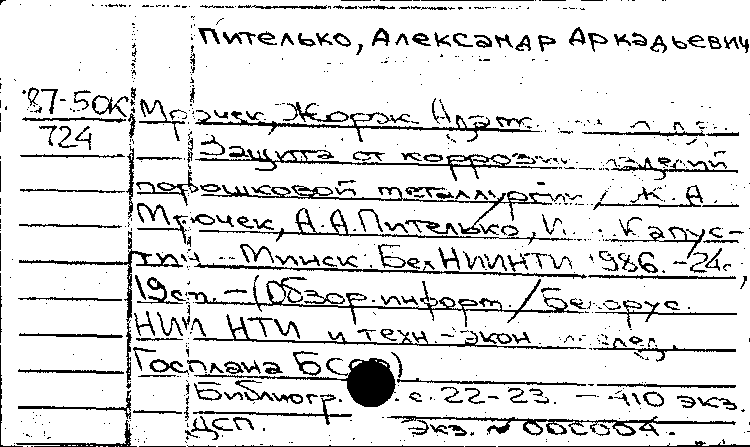 Пителько, Александр Аркадьевич
87-5ОК Мрочек, Жорж
724
Защита от коррозии изделий
порошковой металлургии / Ж.А.
Мрочек, А.А. Пителько, И. Капус-
тин. - Минск: БелНИИНТИ 1986. - 24с,
19см. - (Обзор. информ. / Белорус.
НИИ НТИ и техн.-экон.
Госплана БССР)
Библиогр. с. 22-23. - 410 экз.
ДСП. Экз. № 000004.